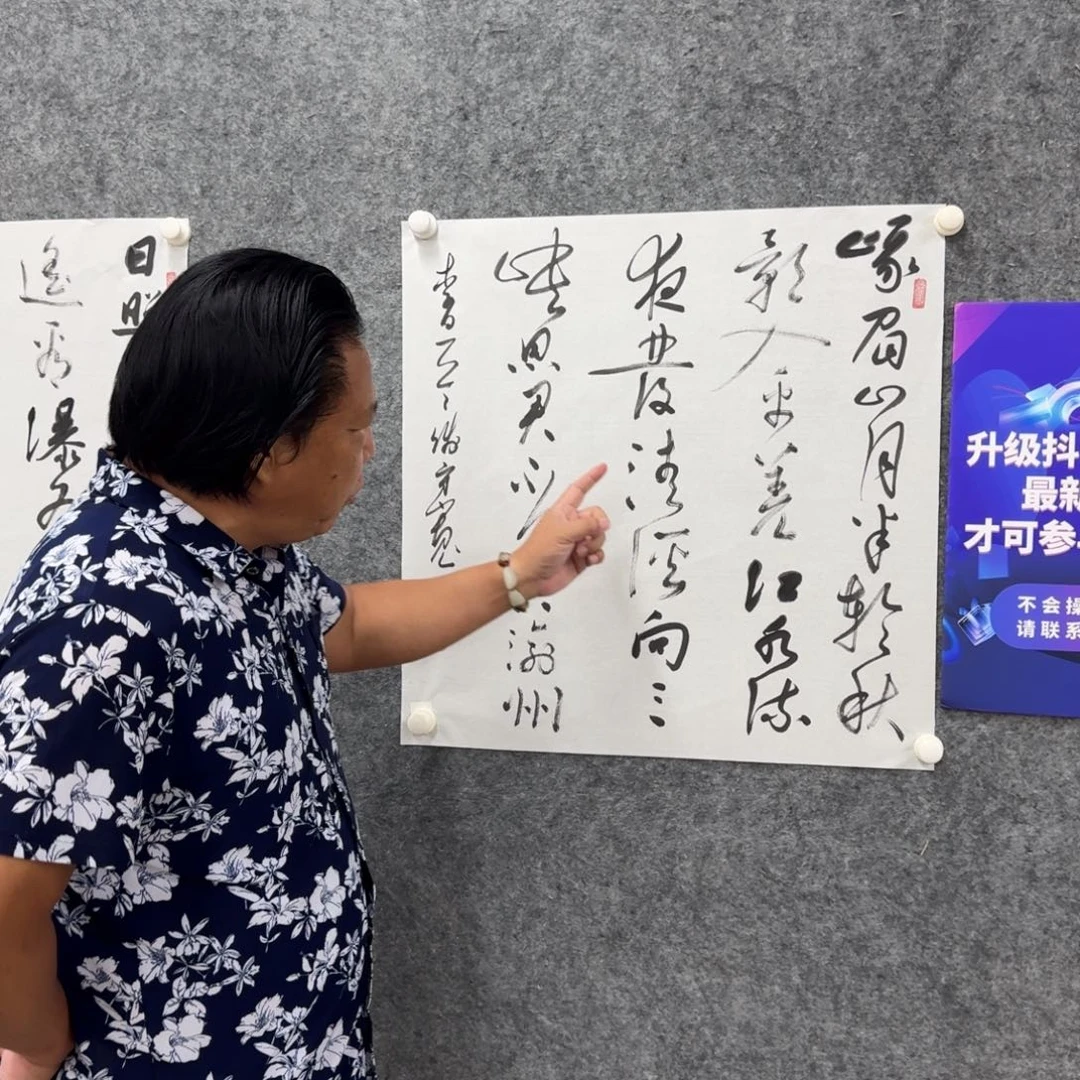 峨眉山月半輪秋
影入平羌江水流
夜發清溪向三
峽思君不渝州
李白
日照
遥看瀑
升级抖
最新
才可参
不会操
请联系